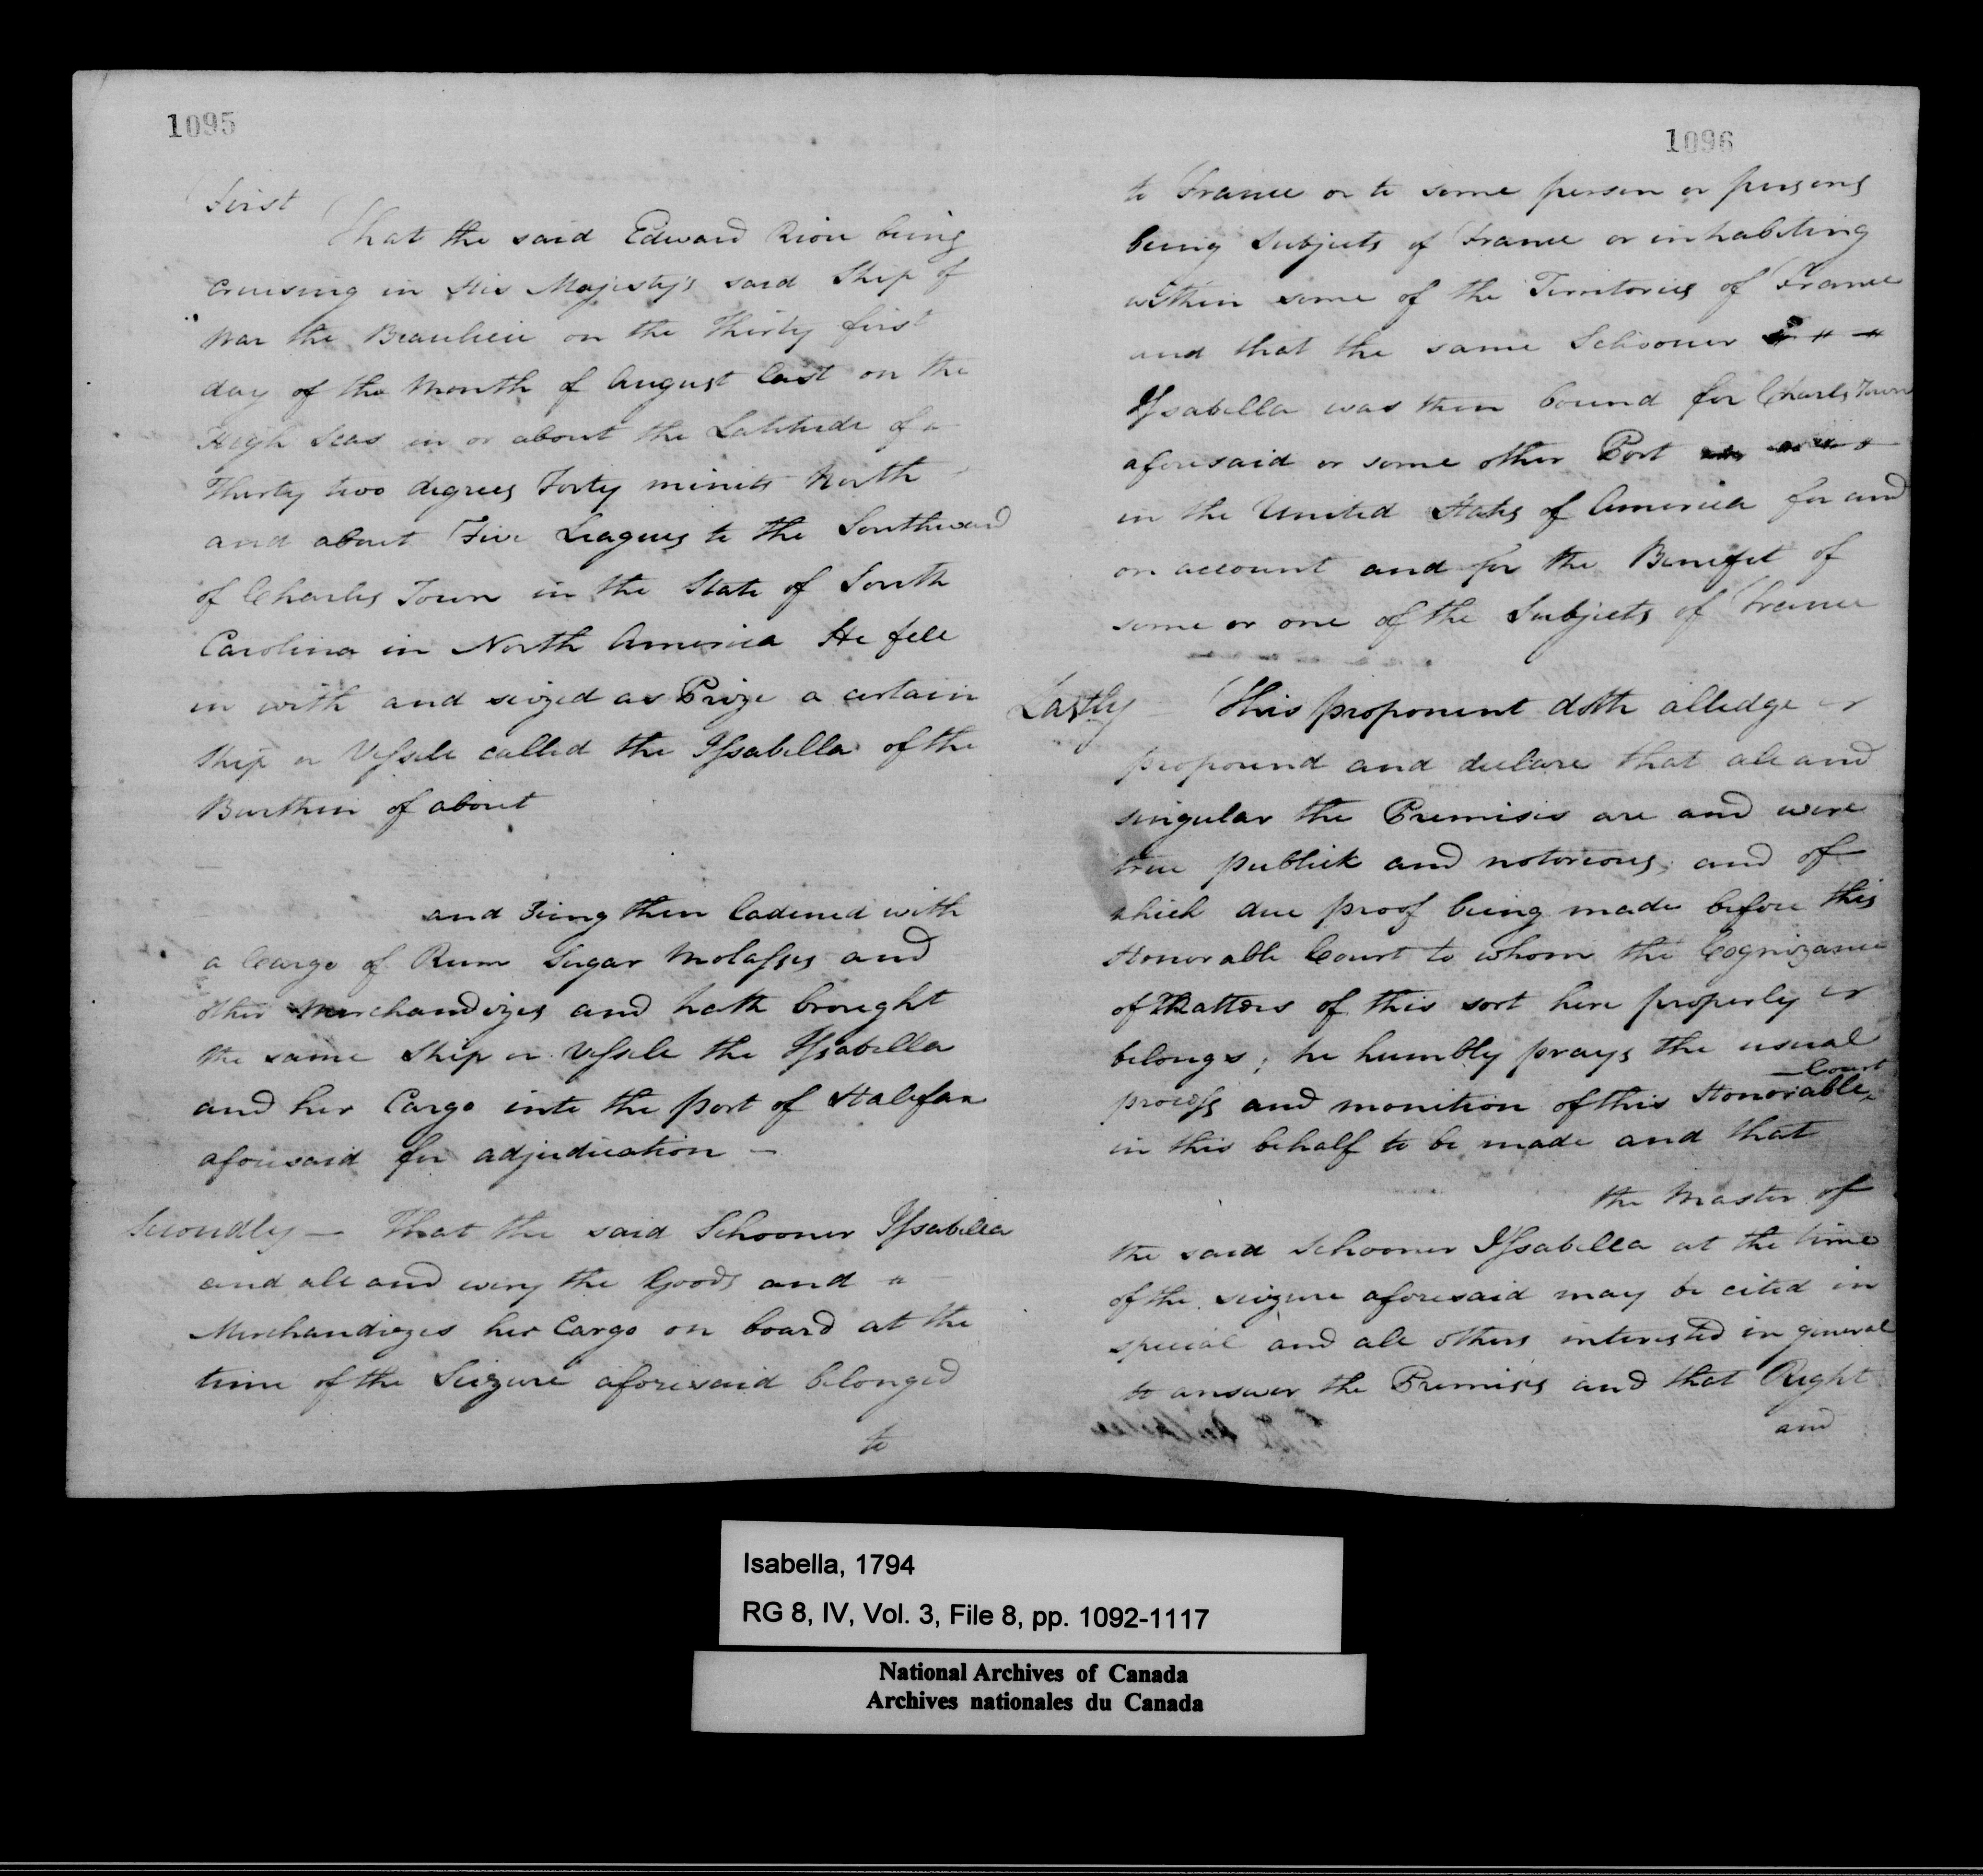 1095
First
That the said Edward Riou being
cruising in His Majesty's said Ship of
War the Beaulieu on the Thirty first
day of the Month of August last on the
High Seas in or about the Latitude of
Thirty two degrees Forty minits North
and about Five Leagues to the Southward
of Charles Town in the State of South
Carolina in North America He fell
in with and seized as Prize a certain
Ship or Vessele called the Issabella of the
Burthen of about
and being then Ladened with
a Cargo of Rum Sugar Molasses and
other Merchandizes and hath brought
the same Ship or Vessele the Issabella
and her Cargo into the port of Halifax
aforesaid for adjudication —
Secondly — That the said Schooner Issabella
and all and every the Goods and
Merchandizes her Cargo on board at the
time of the Seizure aforesaid belonged
to
1096
to France or to some person or persons
being Subjects of France or inhabiting
within some of the Territories of France
and that the same Schooner
Issabella was then bound for Charles Town
aforesaid or some other Port
in the United States of America for and
on account and for the Benefit of
some or one of the Subjects of France
Lastly — This proponent doth alledge
propound and declare that all and
singular the Premises are and were
true publick and notorious; and of
which due proof being made before this
Honorable Court to whom the Cognizance
of Matters of this sort here properly
belongs; he humbly prays the usual
Court
process and monition of this Honorable
in this behalf to be made and that
the Master of
the said Schooner Issabella at the time
of the seizure aforesaid may be cited in
special and all others interested in general
to answer the Premises and that Right
and
Isabella, 1794
RG 8, IV, Vol. 3, File 8, pp. 1092-1117
National Archives of Canada
Archives nationales du Canada